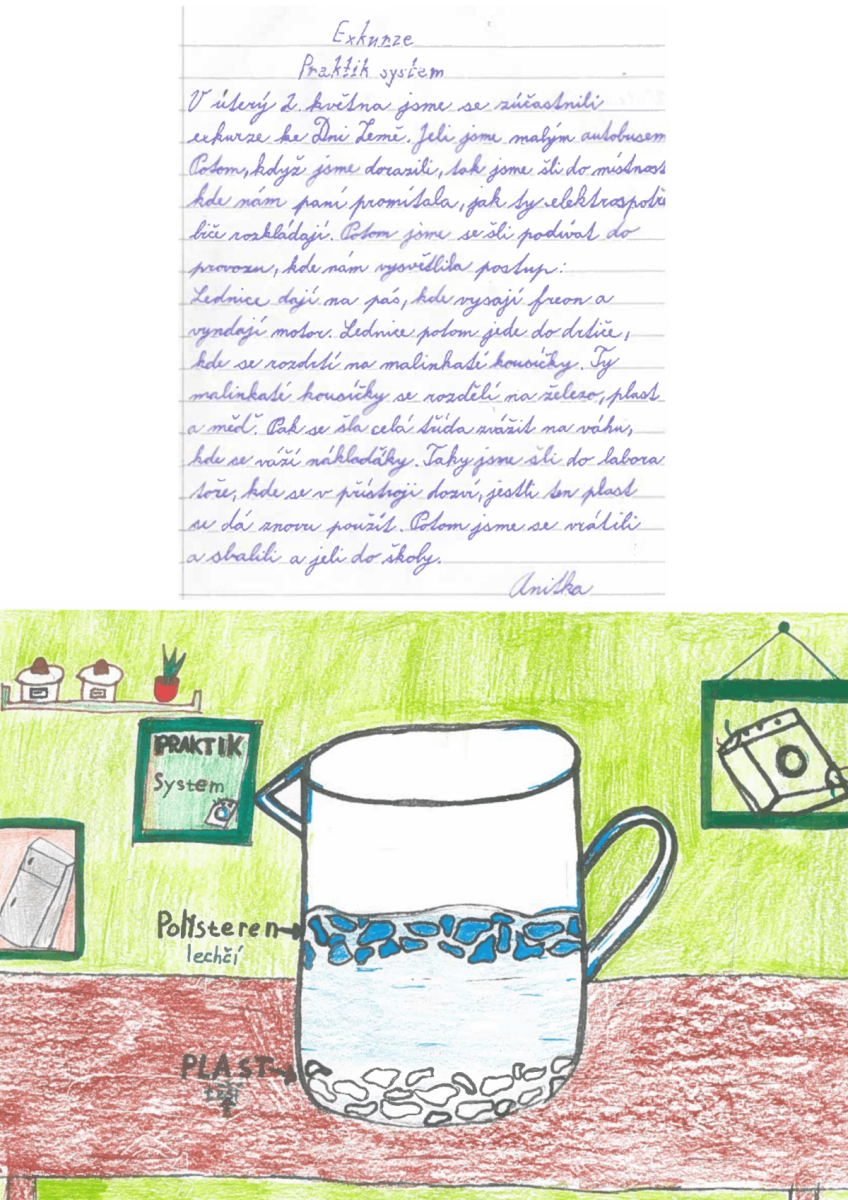 Exkurze
Praktik systém
V úterý 2. května jsme se zúčastnili
exkurze ke Dni Země. Jeli jsme malým autobusem
Potom, když jsme dorazili, tak jsme šli do místnost
kde nám paní promítala, jak ty elektrospotře
biče rozkládají. Potom jsme se šli podívat do
provozu, kde nám vysvětlila postup:
Lednice dají na pás, kde vysají freon a
vyndají motor. Lednice potom jede do drtiče,
kde se rozdrtí na malinkaté kousíčky. Ty
malinkaté kousíčky se rozdělí na železo, plast
a měď. Pak se šla celá třída zvážit na váhu,
kde se váží nákladáky. Taky jsme šli do labora
toře, kde se v přístroji dozví, jestli ten plast
se dá znovu použít. Potom jsme se vrátili
a sbalili a jeli do školy.
Anitka
PRAKTIK
System
Polysteren
lechčí
PLAST